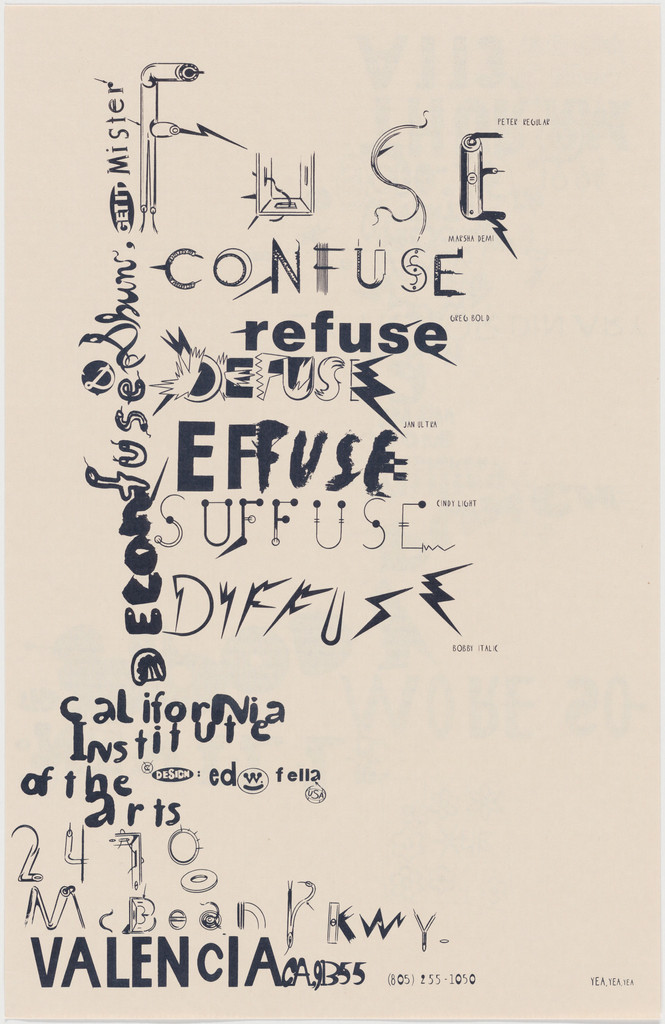 FUSE
PETER REGULAR
CONFUSE
MARSHA DEMI
refuse
GREG BOLD
DEFUSE
EFFUSE
JAN ULTRA
SUFFUSE
CINDY LIGHT
DIFFUSE
BOBBY ITALIC
DECONfuse Shun', GET IT, Mister
caLiforNia
INstitute
of the
arts
© DESIGN: ed w. fella USA
24700
McBean Pkwy.
VALENCIA CA, 91355 (805) 255-1050
YEA, YEA, YEA